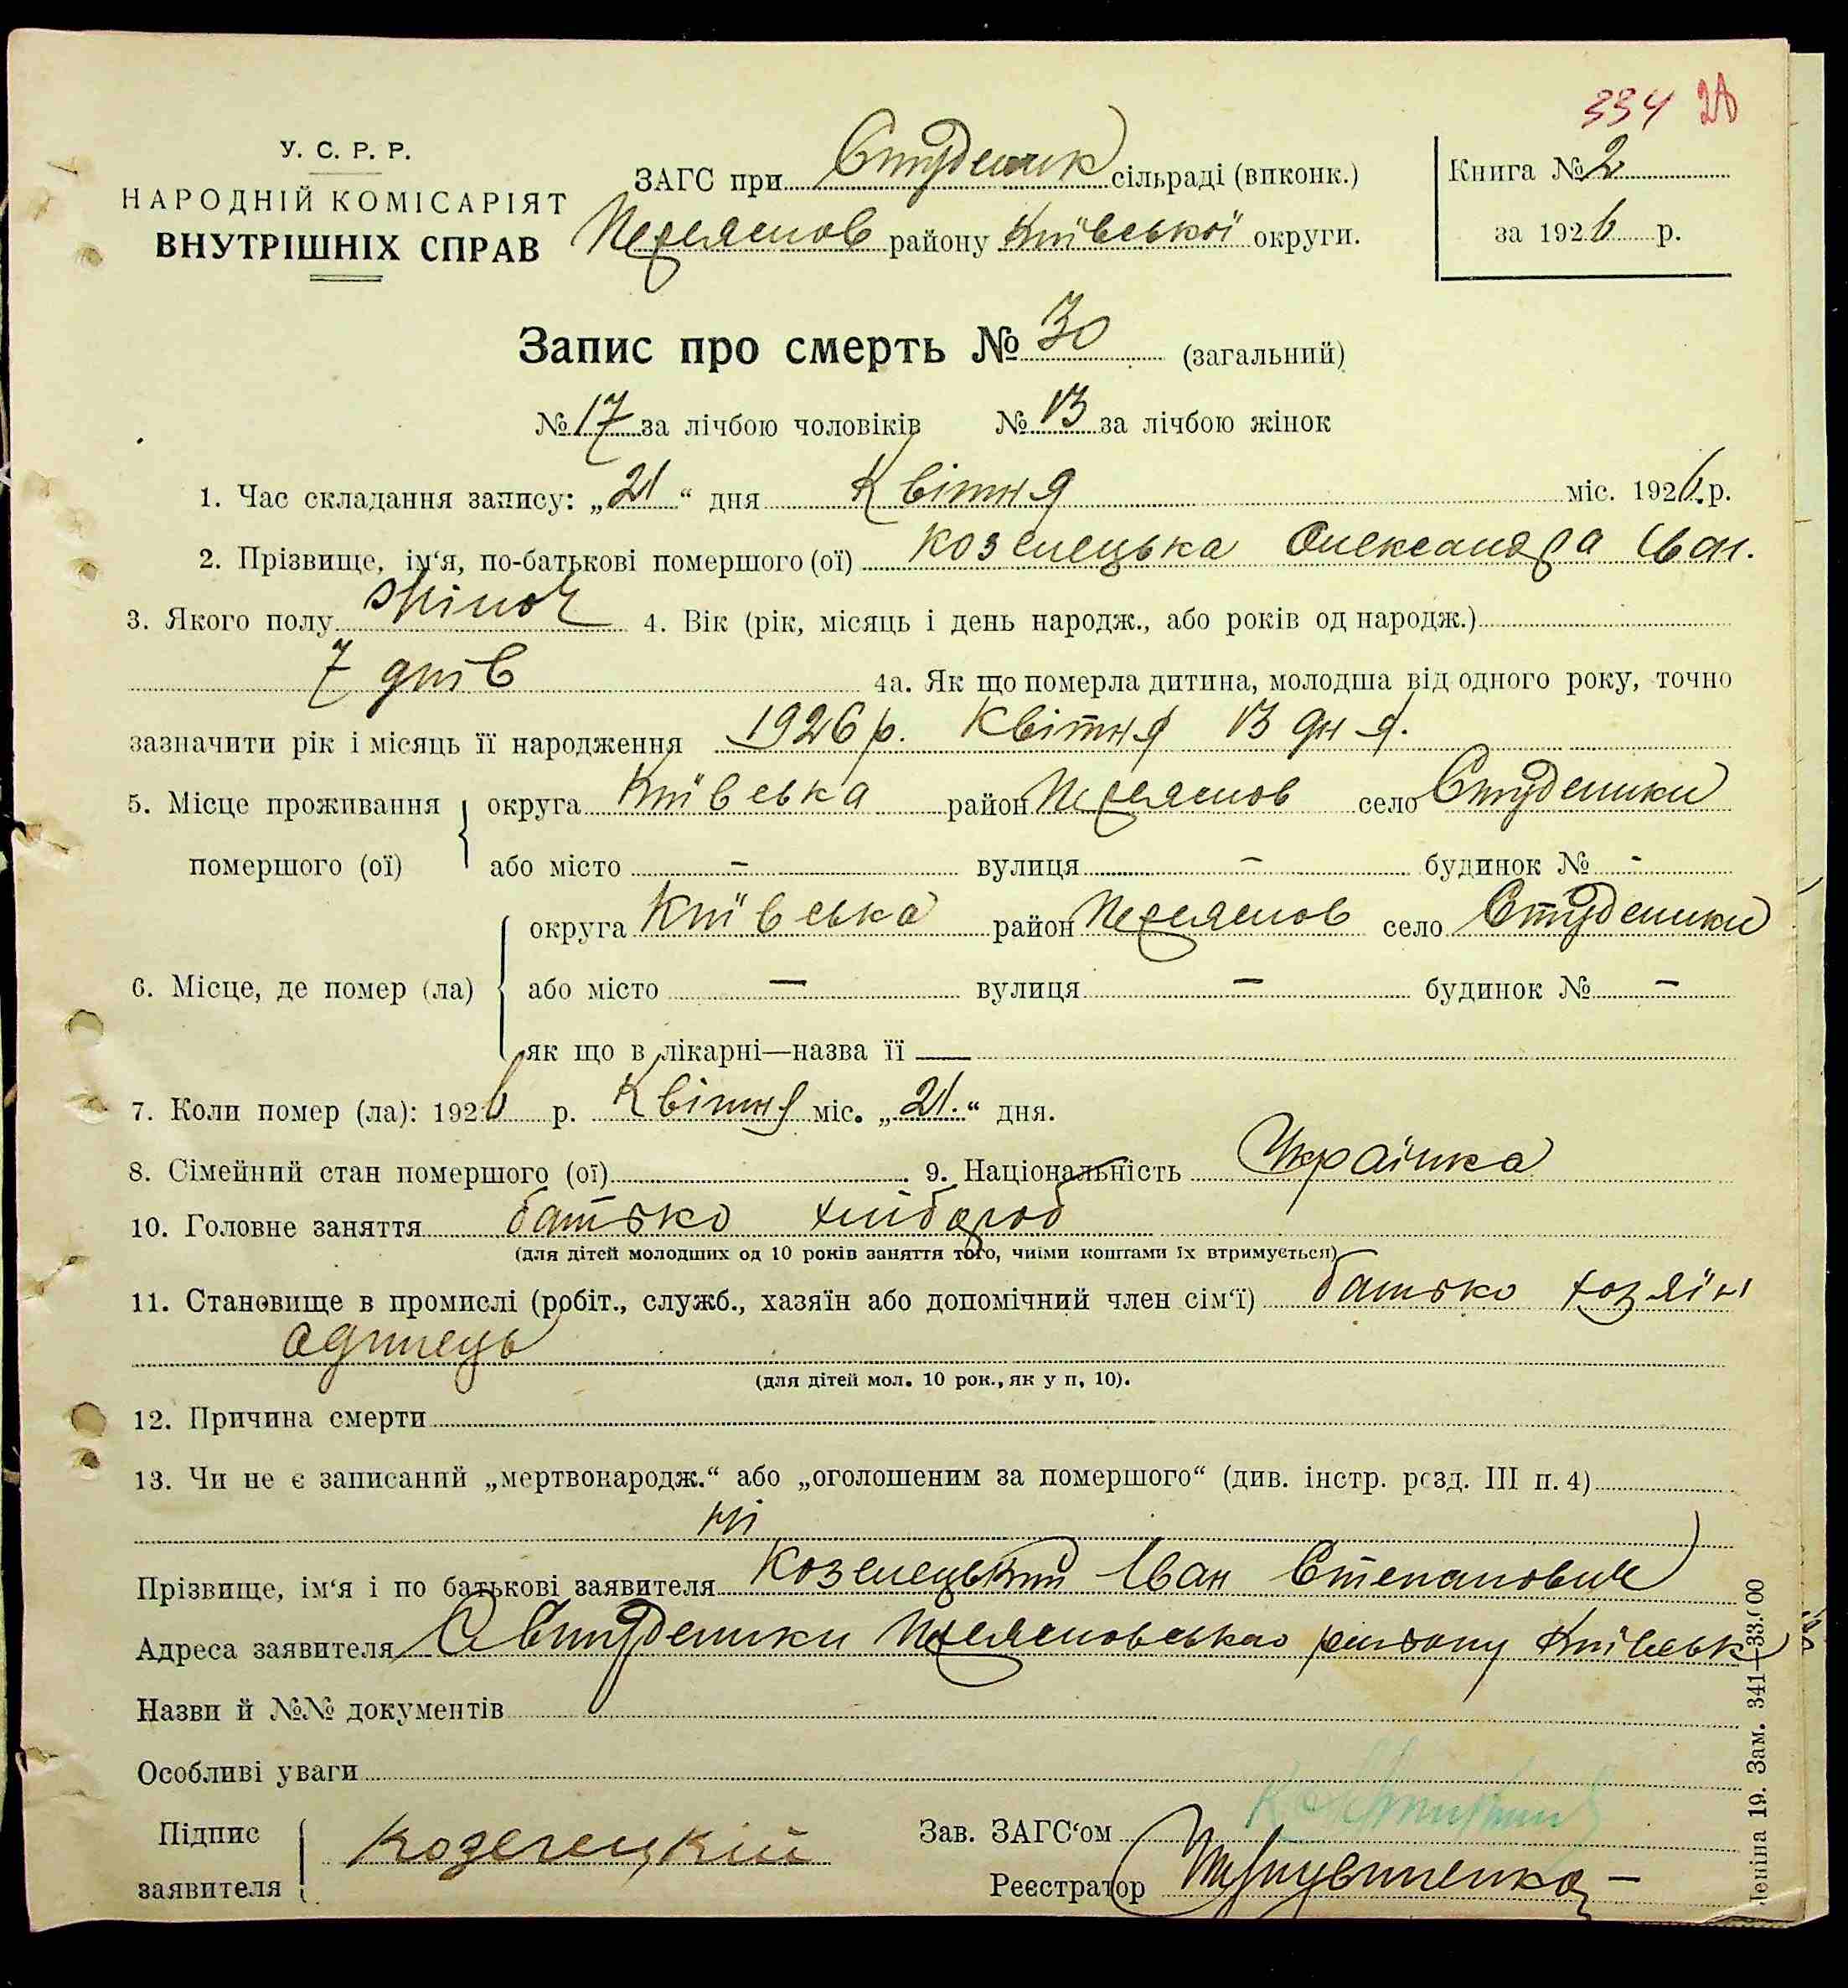 334 28
У. С. Р. Р.
НАРОДНІЙ КОМІСАРІЯТ
ВНУТРІШНІХ СПРАВ
ЗАГС при Студеник сільраді (виконк.)
Переяслов району Київської округи.
Книга № 2
за 1926 р.
Запис про смерть № 30 (загальний)
№ 17 за лічбою чоловіків № 13 за лічбою жінок
1. Час складання запису: „21“ дня Квітня міс. 1926 р.
2. Прізвище, ім‘я, по-батькові помершого (ої) Козелецька Олександра Іван.
3. Якого полу жіноч 4. Вік (рік, місяць і день народж., або років од народж.)
7 днів 4а. Як що померла дитина, молодша від одного року, точно
зазначити рік і місяць її народження 1926 р. Квітня 13 дня.
5. Місце проживання помершого (ої) округа Київська район Переяслов село Студеники
або місто – вулиця – будинок № -
6. Місце, де помер (ла) округа Київська район Переяслов село Студеники
або місто — вулиця — будинок № —
як що в лікарні—назва її —
7. Коли помер (ла): 1926 р. Квітня міс. „21.“ дня.
8. Сімейний стан помершого (ої) 9. Національність Українка
10. Головне заняття батько хлібороб
(для дітей молодших од 10 років заняття того, чиїми коштами їх втримується)
11. Становище в промислі (робіт., служб., хазяїн або допомічний член сім‘ї) батько хозяїн
одинець
(для дітей мол. 10 рок., як у п, 10).
12. Причина смерти
13. Чи не є записаний „мертвонародж.“ або „оголошеним за помершого“ (див. інстр. розд. III п. 4)
ні
Прізвище, ім‘я і по батькові заявителя Козелецький Іван Степанович
Адреса заявителя С Студеники Переясловського району Київськ
Назви й №№ документів
Особливі уваги
Підпис заявителя Козелецкій
Зав. ЗАГС‘ом
Реєстратор
Леніна 19. Зам. 341—33.000